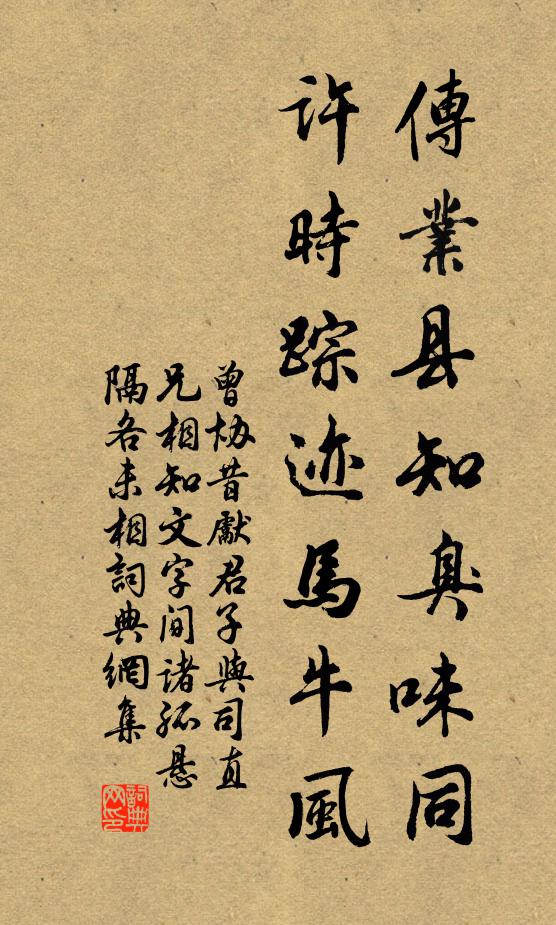 傳業县知臭味同
許時踪迹馬牛風
曾协昔獻君子與司直
兄相知文字间諸孤悬
隔各未相詞典網集
詞典网印